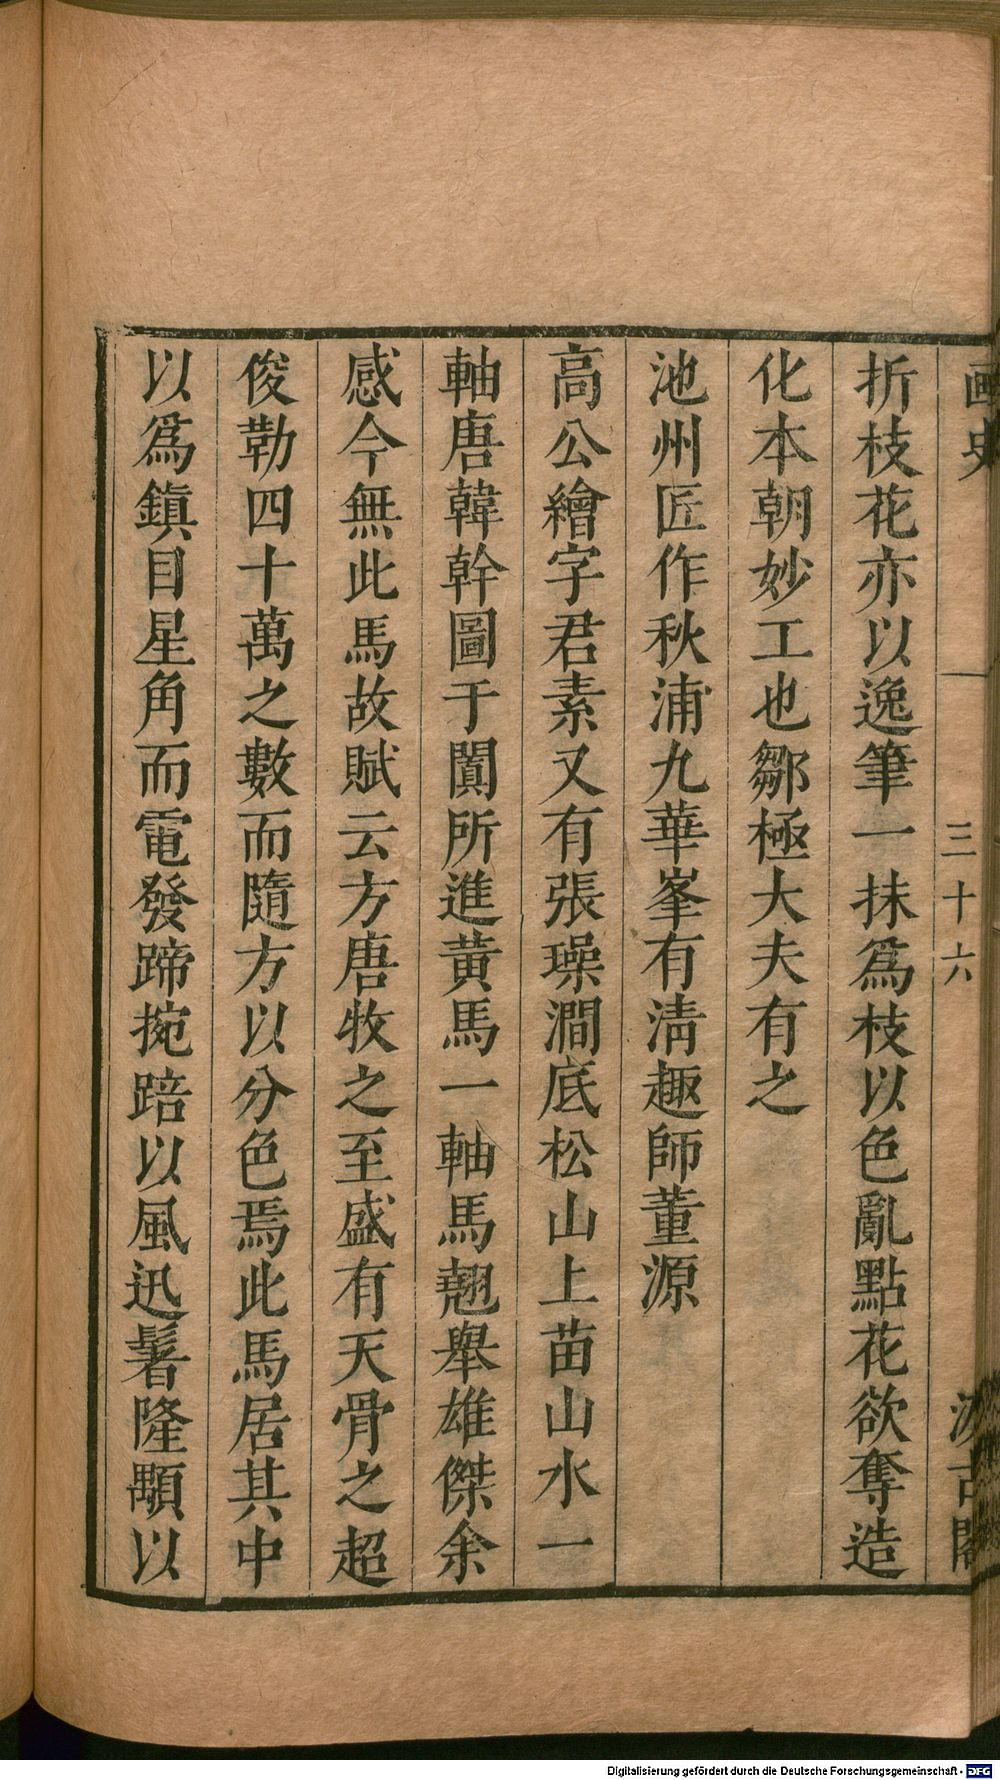 画史
三十六
汲古閣
折枝花亦以逸筆一抹爲枝以色亂點花欲奪造
化本朝妙工也鄒極大夫有之
池州匠作秋浦九華峯有清趣師董源
高公繪字君素又有張璪澗底松山上苗山水一
軸唐韓幹圖于闐所進黄馬一軸馬翹舉雄傑余
感今無此馬故賦云方唐牧之至盛有天骨之超
俊勒四十萬之數而隨方以分色焉此馬居其中
以爲鎮目星角而電發蹄捥踣以風迅鬐隆顒以
Digitalisierung gefördert durch die Deutsche Forschungsgemeinschaft - DFG